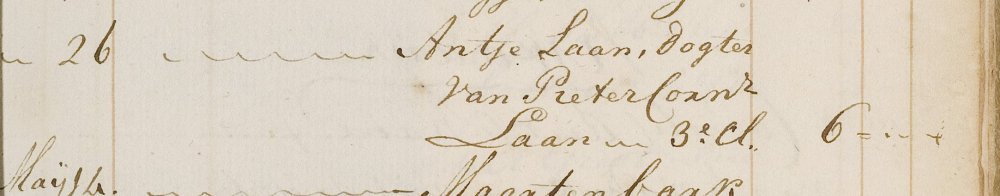 " 26 ~ ~ ~ ~ Antje Laan, dogter
van Pieter Cornr
Laan " 3e Cl. 6 = " "
Maij 14. ~ ~ ~ ~ Maarten